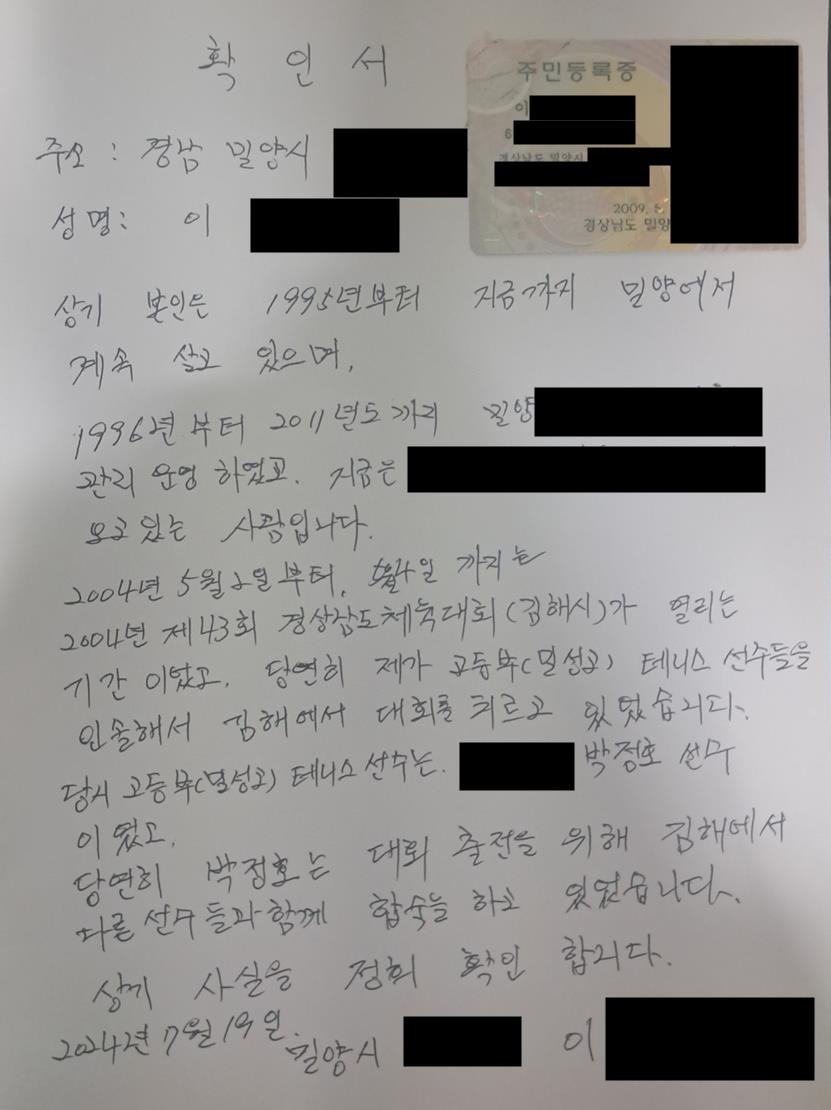 확 인 서
주민등록증
이
6
경상남도 밀양시
2009. 5.
경상남도 밀양
주소 : 경남 밀양시
성명: 이
상기 본인은 1995년부터 지금까지 밀양에서
계속 살고 있으며,
1996년부터 2011년도까지 밀양
관리 운영 하였고. 지금은
오고 있는 사람입니다.
2004년 5월 2일부터, 5월 일 까지는
2004년 제43회 경상남도체육대회(김해시)가 열리는
기간 이였고, 당연히 제가 고등부(밀성고) 테니스 선수들을
인솔해서 김해에서 대회를 치르고 있었습니다.
당시 고등부(밀성고) 테니스 선수는. 박정호 선수
이 였고,
당연히 박정호는 대회 출전을 위해 김해에서
다른 선수들과 함께 합숙을 하고 있었습니다.
상기 사실을 정히 확인 합니다.
2024년 7월 19일.
밀양시 이